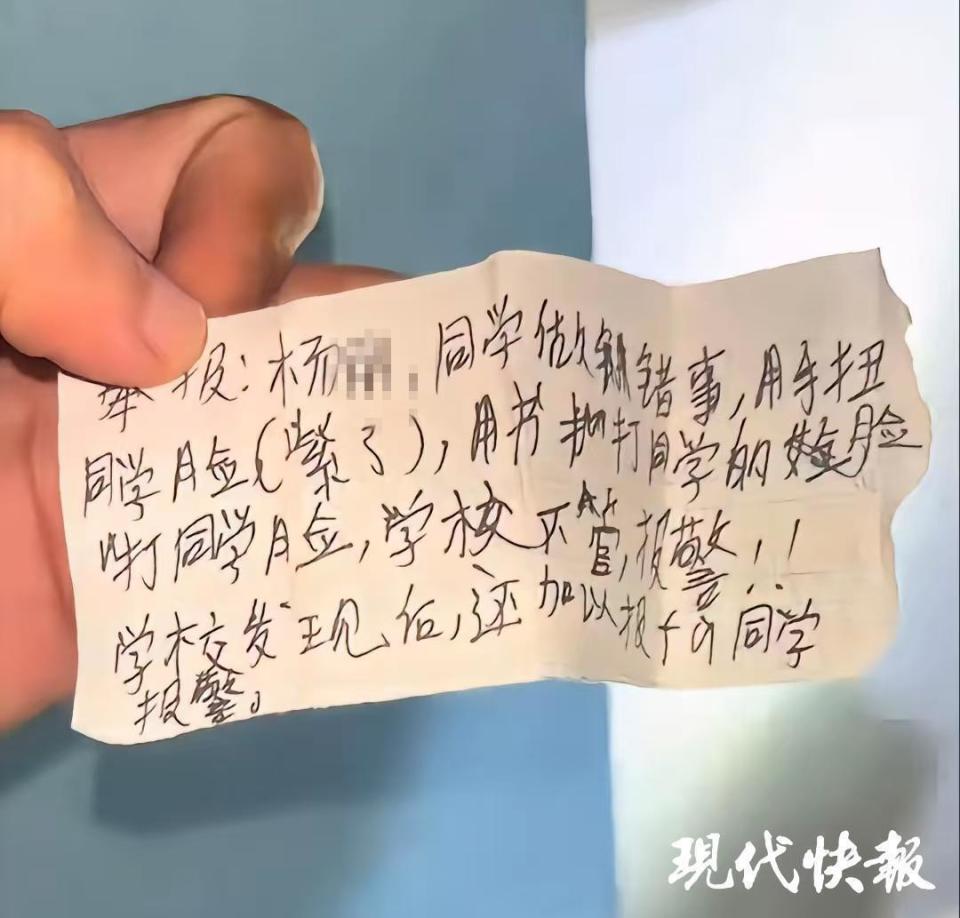 举报：杨 ，同学做错事，用手扭
同学脸（紫了），用书抽打同学的脸
打同学脸，学校不管，报警！！
学校发现后，还加以报 同学
报警。
現代快報